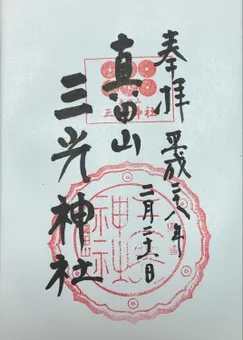 奉拝
平成二八年
二月二十一日
真田山
三光神社
三光神社